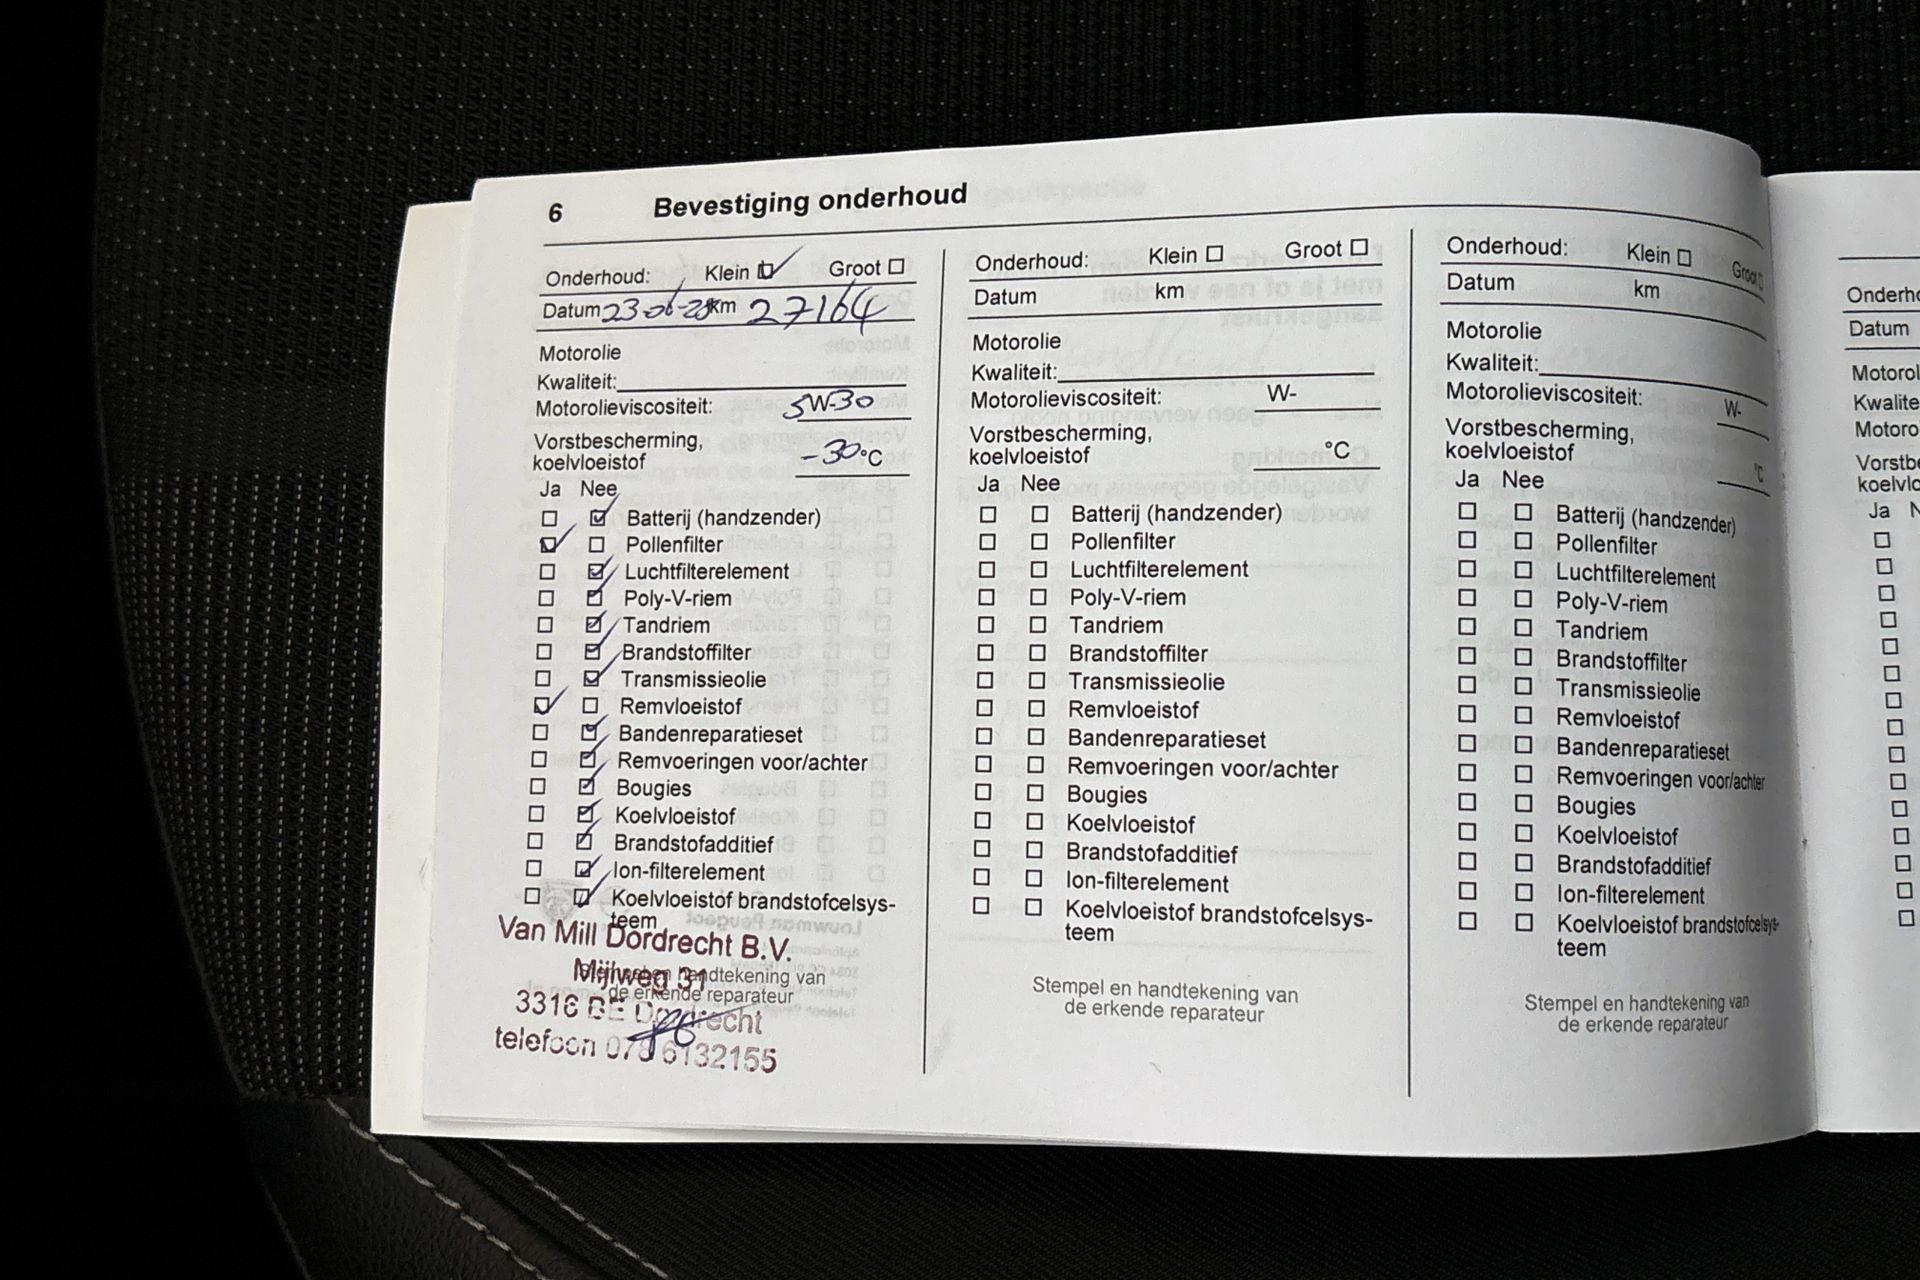 6 Bevestiging onderhoud
Onderhoud: Klein Groot
Datum 23-06- km 27164
Motorolie
Kwaliteit:
Motorolieviscositeit: 5W-30
Vorstbescherming,
koelvloeistof -30°C
Ja Nee
Batterij (handzender)
Pollenfilter
Luchtfilterelement
Poly-V-riem
Tandriem
Brandstoffilter
Transmissieolie
Remvloeistof
Bandenreparatieset
Remvoeringen voor/achter
Bougies
Koelvloeistof
Brandstofadditief
Ion-filterelement
Koelvloeistof brandstofcelsys-
teem
Van Mill Dordrecht B.V.
Mijlweg 31
handtekening van
de erkende reparateur
3316 BE Dordrecht
telefoon 078 6132155
Onderhoud: Klein Groot
Datum km
Motorolie
Kwaliteit:
Motorolieviscositeit: W-
Vorstbescherming,
koelvloeistof °C
Ja Nee
Batterij (handzender)
Pollenfilter
Luchtfilterelement
Poly-V-riem
Tandriem
Brandstoffilter
Transmissieolie
Remvloeistof
Bandenreparatieset
Remvoeringen voor/achter
Bougies
Koelvloeistof
Brandstofadditief
Ion-filterelement
Koelvloeistof brandstofcelsys-
teem
Stempel en handtekening van
de erkende reparateur
Onderhoud: Klein Groot
Datum km
Motorolie
Kwaliteit:
Motorolieviscositeit: W-
Vorstbescherming,
koelvloeistof °C
Ja Nee
Batterij (handzender)
Pollenfilter
Luchtfilterelement
Poly-V-riem
Tandriem
Brandstoffilter
Transmissieolie
Remvloeistof
Bandenreparatieset
Remvoeringen voor/achter
Bougies
Koelvloeistof
Brandstofadditief
Ion-filterelement
Koelvloeistof brandstofcelsys-
teem
Stempel en handtekening van
de erkende reparateur
Onderho
Datum
Motorol
Kwalite
Motoro
Vorstbe
koelvlo
Ja N